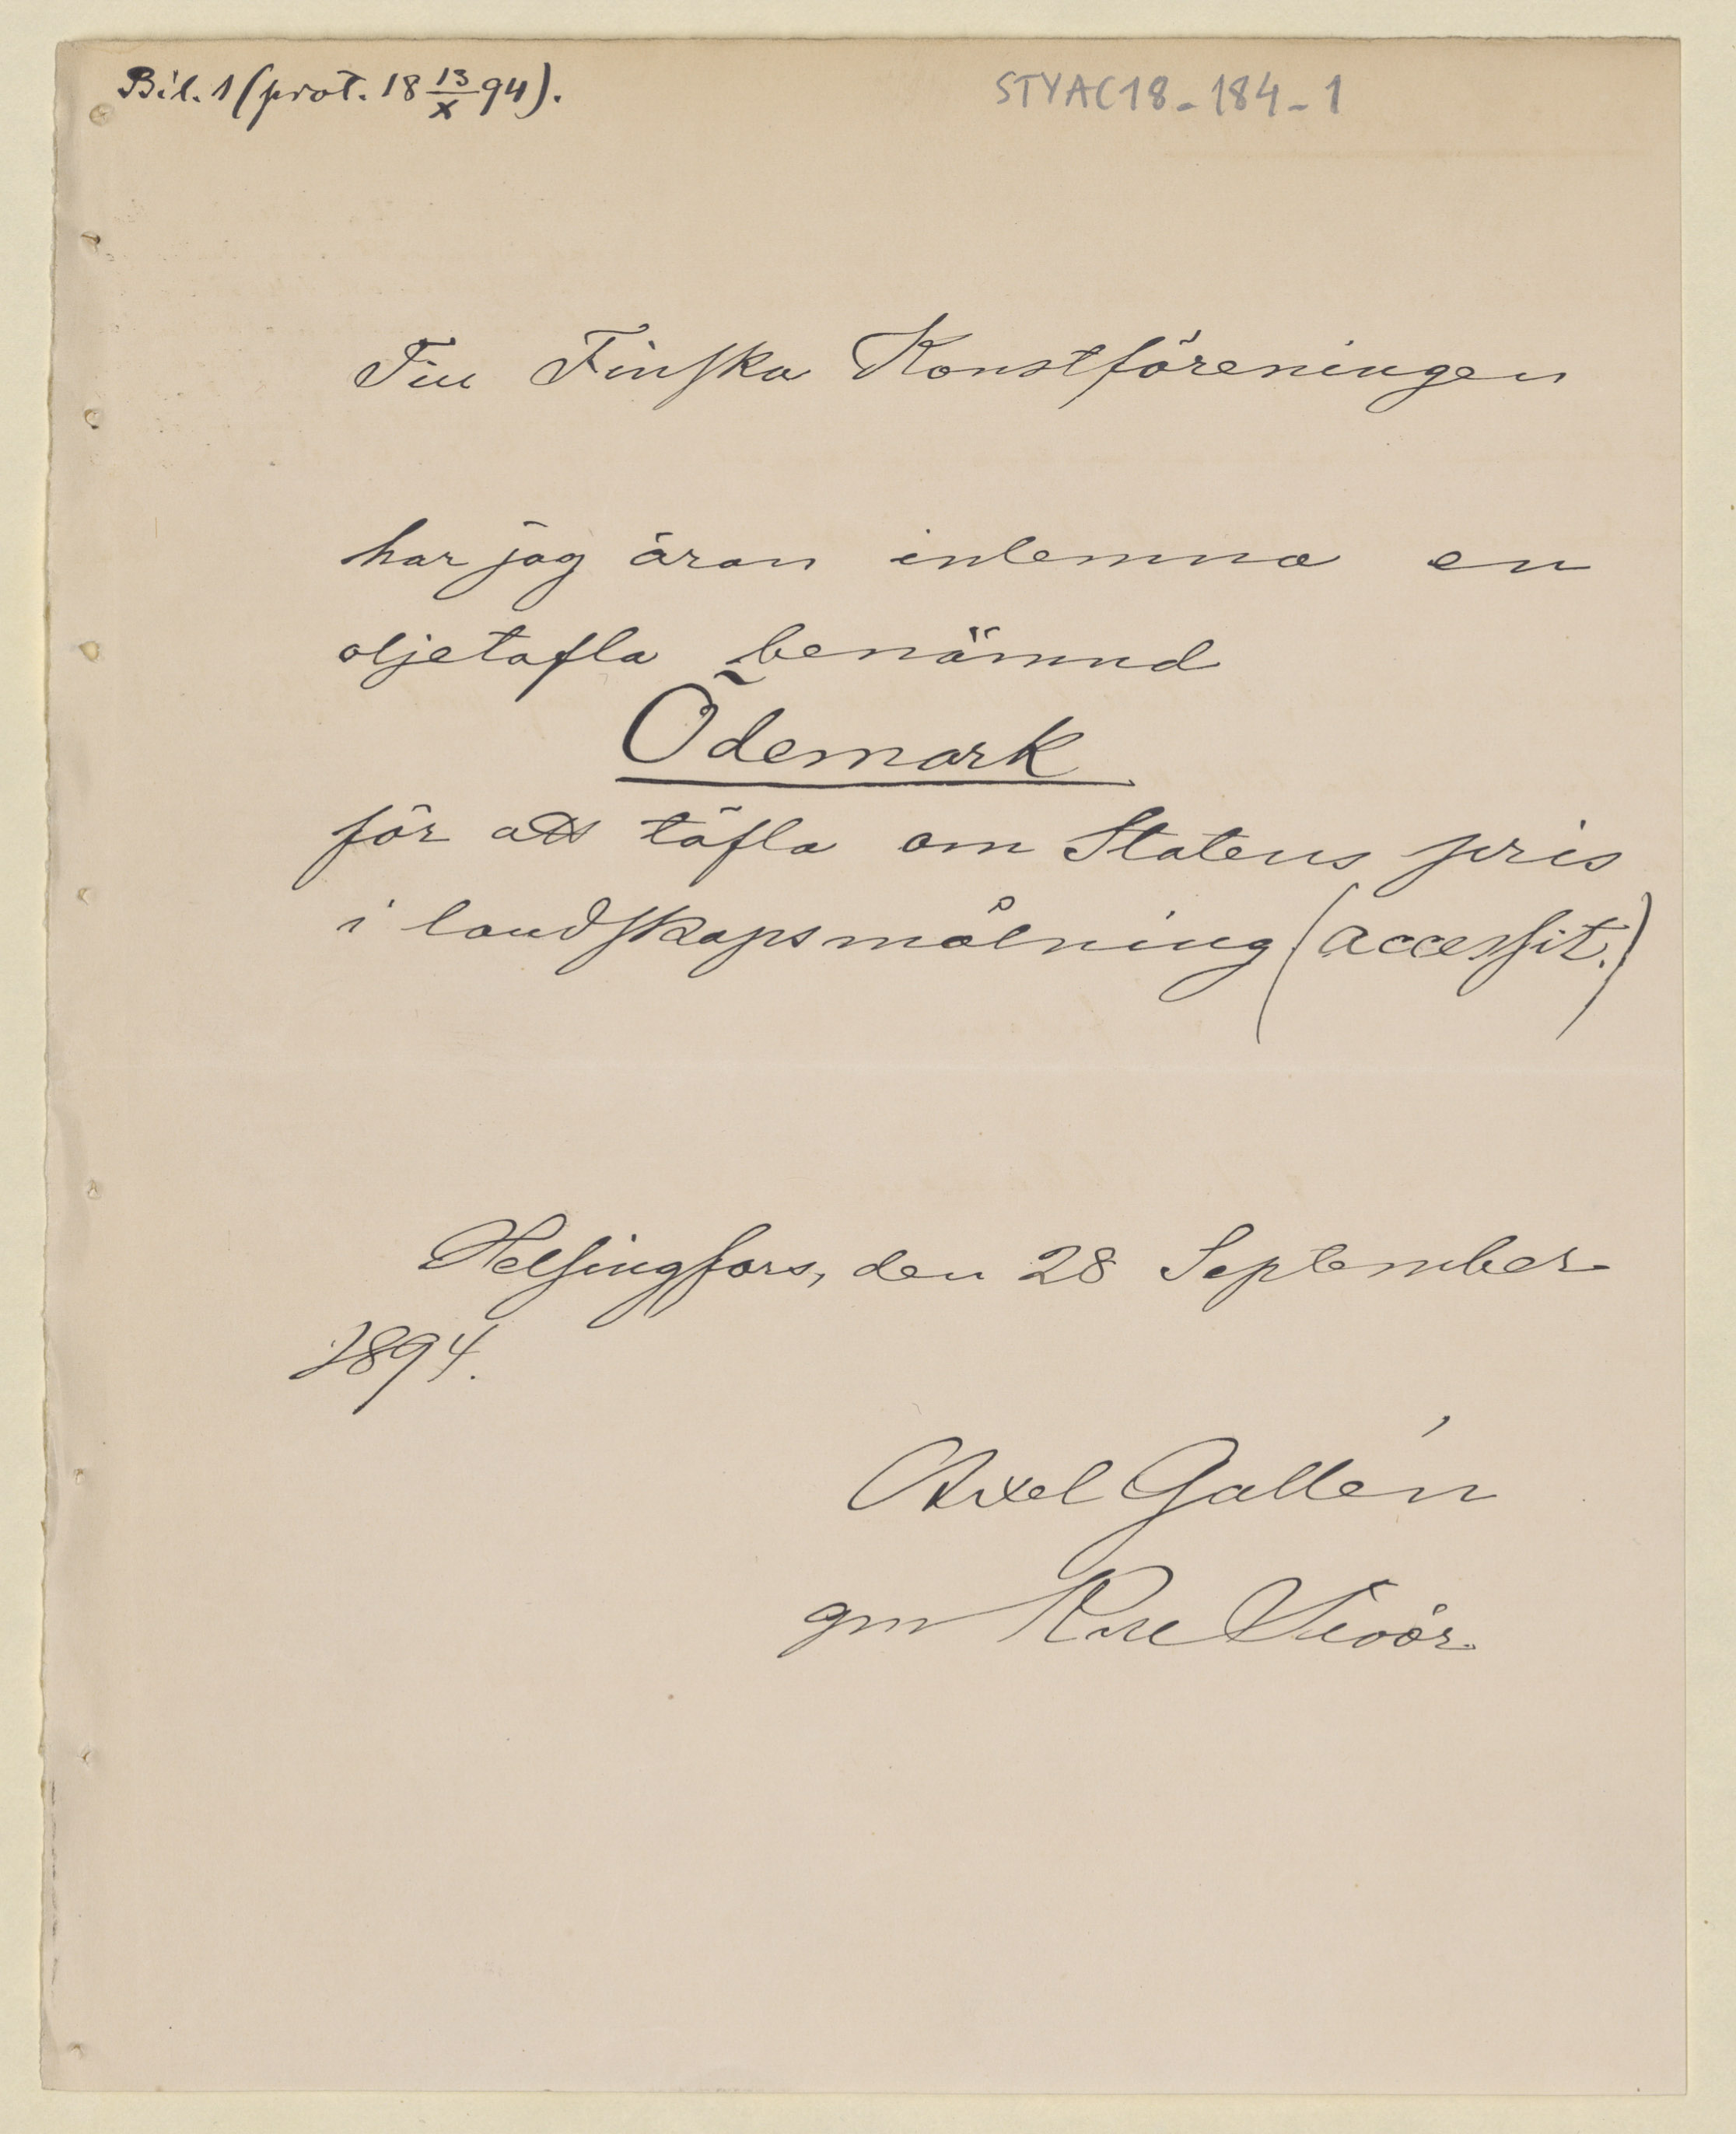 Bil. 1 (prot. 18 13/X 94).
STYAC18-184-1
Till Finska Konstföreningen
har jag äran inlemna en
oljetafla benämnd
Ödemark
för att täfla om Statens pris
i landskapsmålning (accessit.)
Helsingfors, den 28 September
1894.
Axel Gallén
gm Karl Sivór